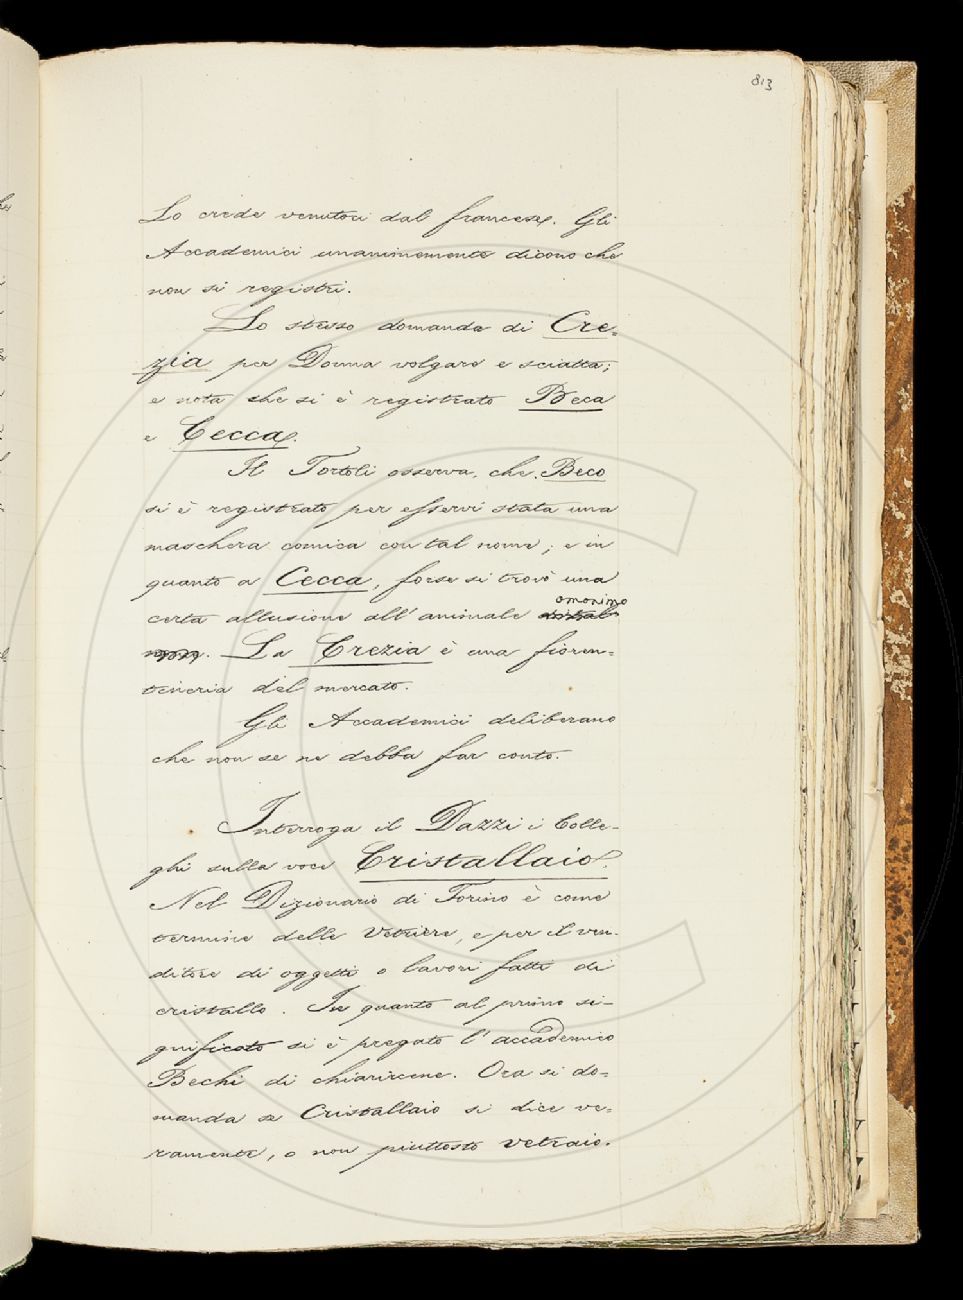 813
Lo crede venutoci dal francese. Gli
Accademici unanimemente dicono che
non si registri.
Lo stesso domanda di Cre-
zia per Donna volgare e sciatta;
e nota che si è registrato Beca
e Cecca.
Il Tortoli osserva, che Beco
si è registrato per esservi stata una
maschera comica con tal nome; e in
quanto a Cecca, forse si trovò una
omonimo
certa allusione all'animale
. La Crezia è una fioren-
tineria del mercato.
Gli Accademici deliberano
che non se ne debba far conto.
Interroga il Dazzi i Colle-
ghi sulla voce Cristallaio.
Nel Dizionario di Torino è come
termine delle Vetriere, e per il ven-
ditore di oggetti o lavori fatti di
cristallo. In quanto al primo si-
gnificato si è pregato l'accademico
Bechi di chiarircene. Ora si do-
manda se Cristallaio si dice ve-
ramente, o non piuttosto vetraio.